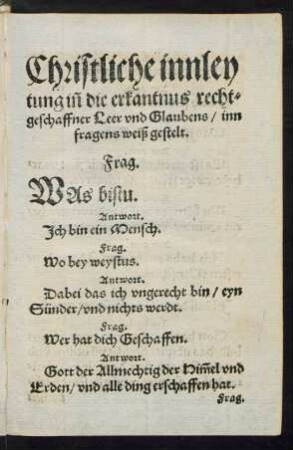 Christliche innley
tung iñ die erkantnus recht-
geschaffner Leer vnd Glaubens / inn
fragens weiß gestelt.
Frag.
WAs bistu.
Antwort.
Ich bin ein Mensch.
Frag.
Wo bey weystus.
Antwort.
Dabei das ich vngerecht bin / eyn
Sünder / vnd nichts werdt.
Frag.
Wer hat dich Geschaffen.
Antwort.
Gott der Allmechtig der Him̃el vnd
Erden / vnd alle ding erschaffen hat.
Frag.